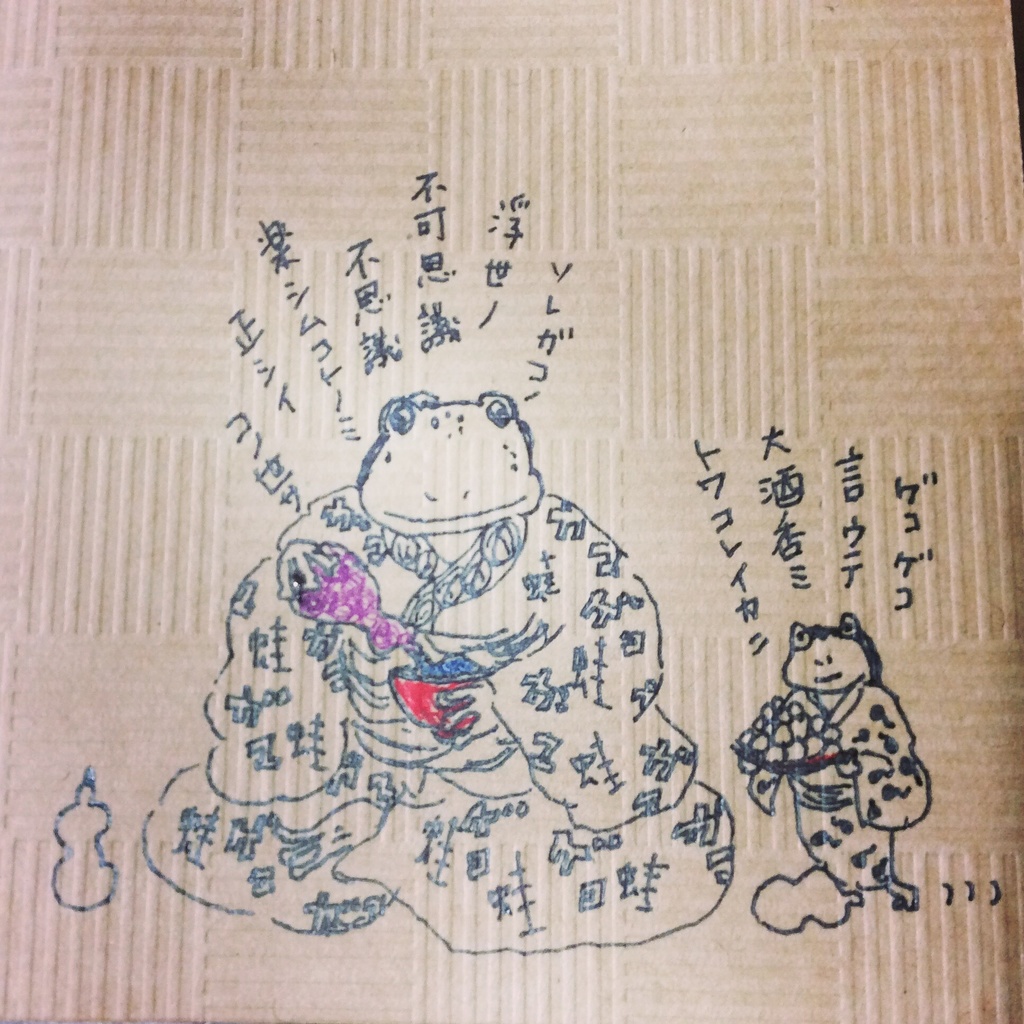 ゲコゲコ
言ウテ
大酒呑ミ
トワコレイカニ
ソレガコノ
浮世ノ
不可思議
不思議
楽シムコトノミ
正シイ
ゲコ
蛙
ゲコ
蛙
ゲコ
蛙
ゲコ
蛙
ゲコ
蛙
ゲコ
蛙
ゲコ
蛙
ゲコ
蛙